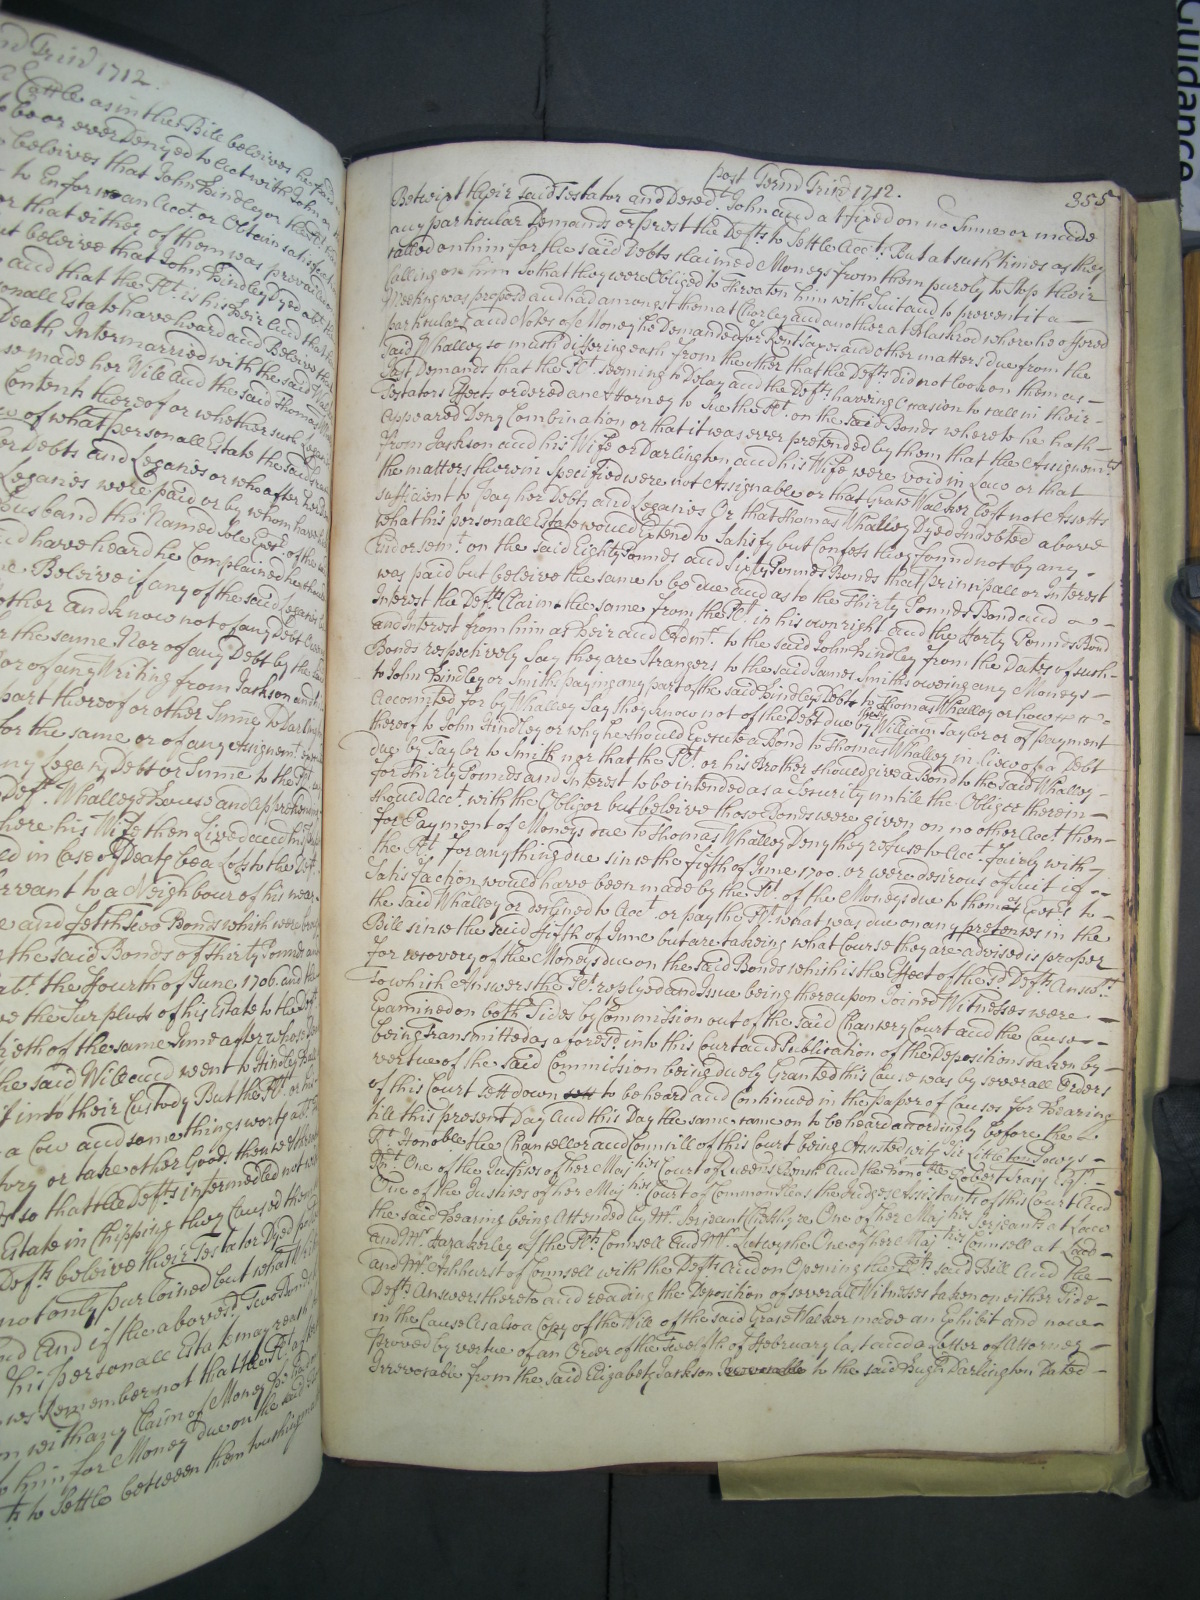 nd Trin' 1712.
Cattle as in the Bill beleives he had
be or ever Denyed to Acct with John
beleives that John Hindley or the
to Enforn an Acct. or Obtain satisfact
or that either of them was prevailed
ut beleive that John Hindley Dyed abt
and that the Plt. is his Heir and that
sonall Estate have heard and Beleive
Death Intermarried with the said
so made her Will and the said Thomas
Content thereof or whether such
w of what personall Estate the said
er Debts and Legacies or who after her
Legacies were paid or by whom
husband tho' Named sole Exr. of the
nd have heard he Complained
ne. Beleive if any of the said Legacies
other and know not of any Debt
r the same Nor of any Debt by the
or of any Writing from Jackson and
part thereof or other Sume to Darlin
for the same or of any Assignemt.
ny Legacy Debt or Sume to the Plt
Deft. Whalleys House and
here his Wife then Lived and
ed in Case of Death be a Loss to the Deft.
ervant to a Neighbour of his near
e and fetch two Bonds which were
the said Bonds of Thirty Pounds and
abt. the ffourth of June 1706. and
ve the Surpluss of his Estate to the Deft
tieth of the same June after whose
he said Will and went to Hindleys
t into their Custody But the Plt. or his
a Cow and some things worth abt.
tory or take other Goods then
so that the Defts intermedled not
Estate in Chipping they Caused
Defts beleive their Testator Dyed
not only purloined but what
nd And if the abovesd. two Bonds
his personall Estate may reach
wes Remember not that the Plt.
n with any Claim of Money
to him for Money due on the said
ts. to Settle between them touching
post Term' Trin' 1712.
355
Betwixt their said Testator and Deced. John and a ffixed on no Sume or made
any particular Demands or prest the Defts to Settle Acct: But at such times as they
called on him for the said Debts claimed Moneys from them purely to Stop their
Calling on him So that they were Obliged to Threaten him with Suit and to prevent it a
Meeting was propos'd and had amongst them at Chorley and another at Blackrod where he offered
particulars and Notes of Money he Demanded for Rent Taxes and other matters due from the
said Whalley so much differing each from the other that the Defts. did not look on them as
Just Demands that the Plt. seeming to Delay and the Defts. having Occasion to call in their
Testators Effects ordered an Attorney to Sue the Plt. on the said Bonds whereto he hath
Appeared Deny Combination or that it was ever pretended by them that the Assignemts
from Jackson and his Wife or Darlington and his Wife were void in Law or that
the matters therein Specified were not Assignable or that Grace Walker left not Assetts
sufficient to pay her Debts and Legacies Or that Thomas Whalley Dyed Indebted above
what his personall Estate would Extend to Satisfy but Confess they found not by any
Endorsemt. on the said Eighty Pounds and Sixty Pounds Bonds that principall or Interest
was paid but beleive the same to be due and as to the Thirty Pounds Bond and
Interest the Defts. Claim the same from the Plt. in his own right and the Forty Pounds Bond
and Interest from him as Heir and Admr. to the said John Hindley from the Dates of such
Bonds respectively Say they are Strangers to the said James Smiths oweing any Moneys
to John Hindley or Smiths paying any part of the said Hindleys Debt to Thomas Whalley or how
Accounted for by Whalley Say they know not of the Debt due by William Taylor or of payment
thereof to John Hindley or why he should Execute a Bond to Thomas Whalley in liew of a Debt
due by Taylor to Smith nor that the Plt. or his Brother should give a Bond to the said Whalley
for Thirty Pounds and Interest to be intended as a Security untill the Obligee therein
should Acct. with the Obligor but beleive those Bonds were given on no other Acct. then
for Payment of Moneys due to Thomas Whalley Deny they refuse to Acct. fairly with
the Plt. for any thing due since the fifth of June 1700. or were desirous of Suit if
Satisfaction would have been made by the Plt. of the Moneys due to them as Exrs. to
the said Whalley or declined to Acct. or pay the Plt. what was due on any pretences in the
Bill since the said ffifth of June but are takeing what Course they are advised is proper
for recovery of the Moneys due on the said Bonds which is the Effect of the sd Defts. Answr.
To which Answers the Plt. replyed and Issue being thereupon Joined Witnesses were
Examined on both Sides by Commission out of the said Chancery Court and the Cause
being Transmitted as aforesd. into this Court and Publication of the Depositions taken by
vertue of the said Commission being duely Granted this Cause was by severall Orders
of this Court sett down to be heard and Continued in the paper of Causes for Hearing
till this present Day And this Day the same came on to be heard accordingly before the
Rt. Honoble. the Chancellor and Councill of this Court being Assisted with Sir Littleton Powys
Knt. One of the Justices of her Majties Court of Queens Bench And the Honoble. Robert Tracy Esqr.
One of the Justices of her Majties Court of Common Pleas the Judges Assistants of this Court And
the said Hearing being Attended by Mr. Serjeant Cheshyre One of her Majties Serjeants at Law
and Mr. Starakerley of the Plts. Councell And Mr. Lutwyche One of her Majties Councell at Law
and Mr. Ashhurst of Councell with the Defts. And on Opening the Plts. said Bill And the
Defts. Answers thereto and reading the Deposition of severall Witnesses taken on either Side
in the Cause As also a Copy of the Will of the said Grace Walker made an Exhibit and now
proved by vertue of an Order of the Twelfth of ffebruary last and a Letter of Attorney
Irrevocable from the said Elizabeth Jackson to the said Hugh Darlington Dated
Guidance